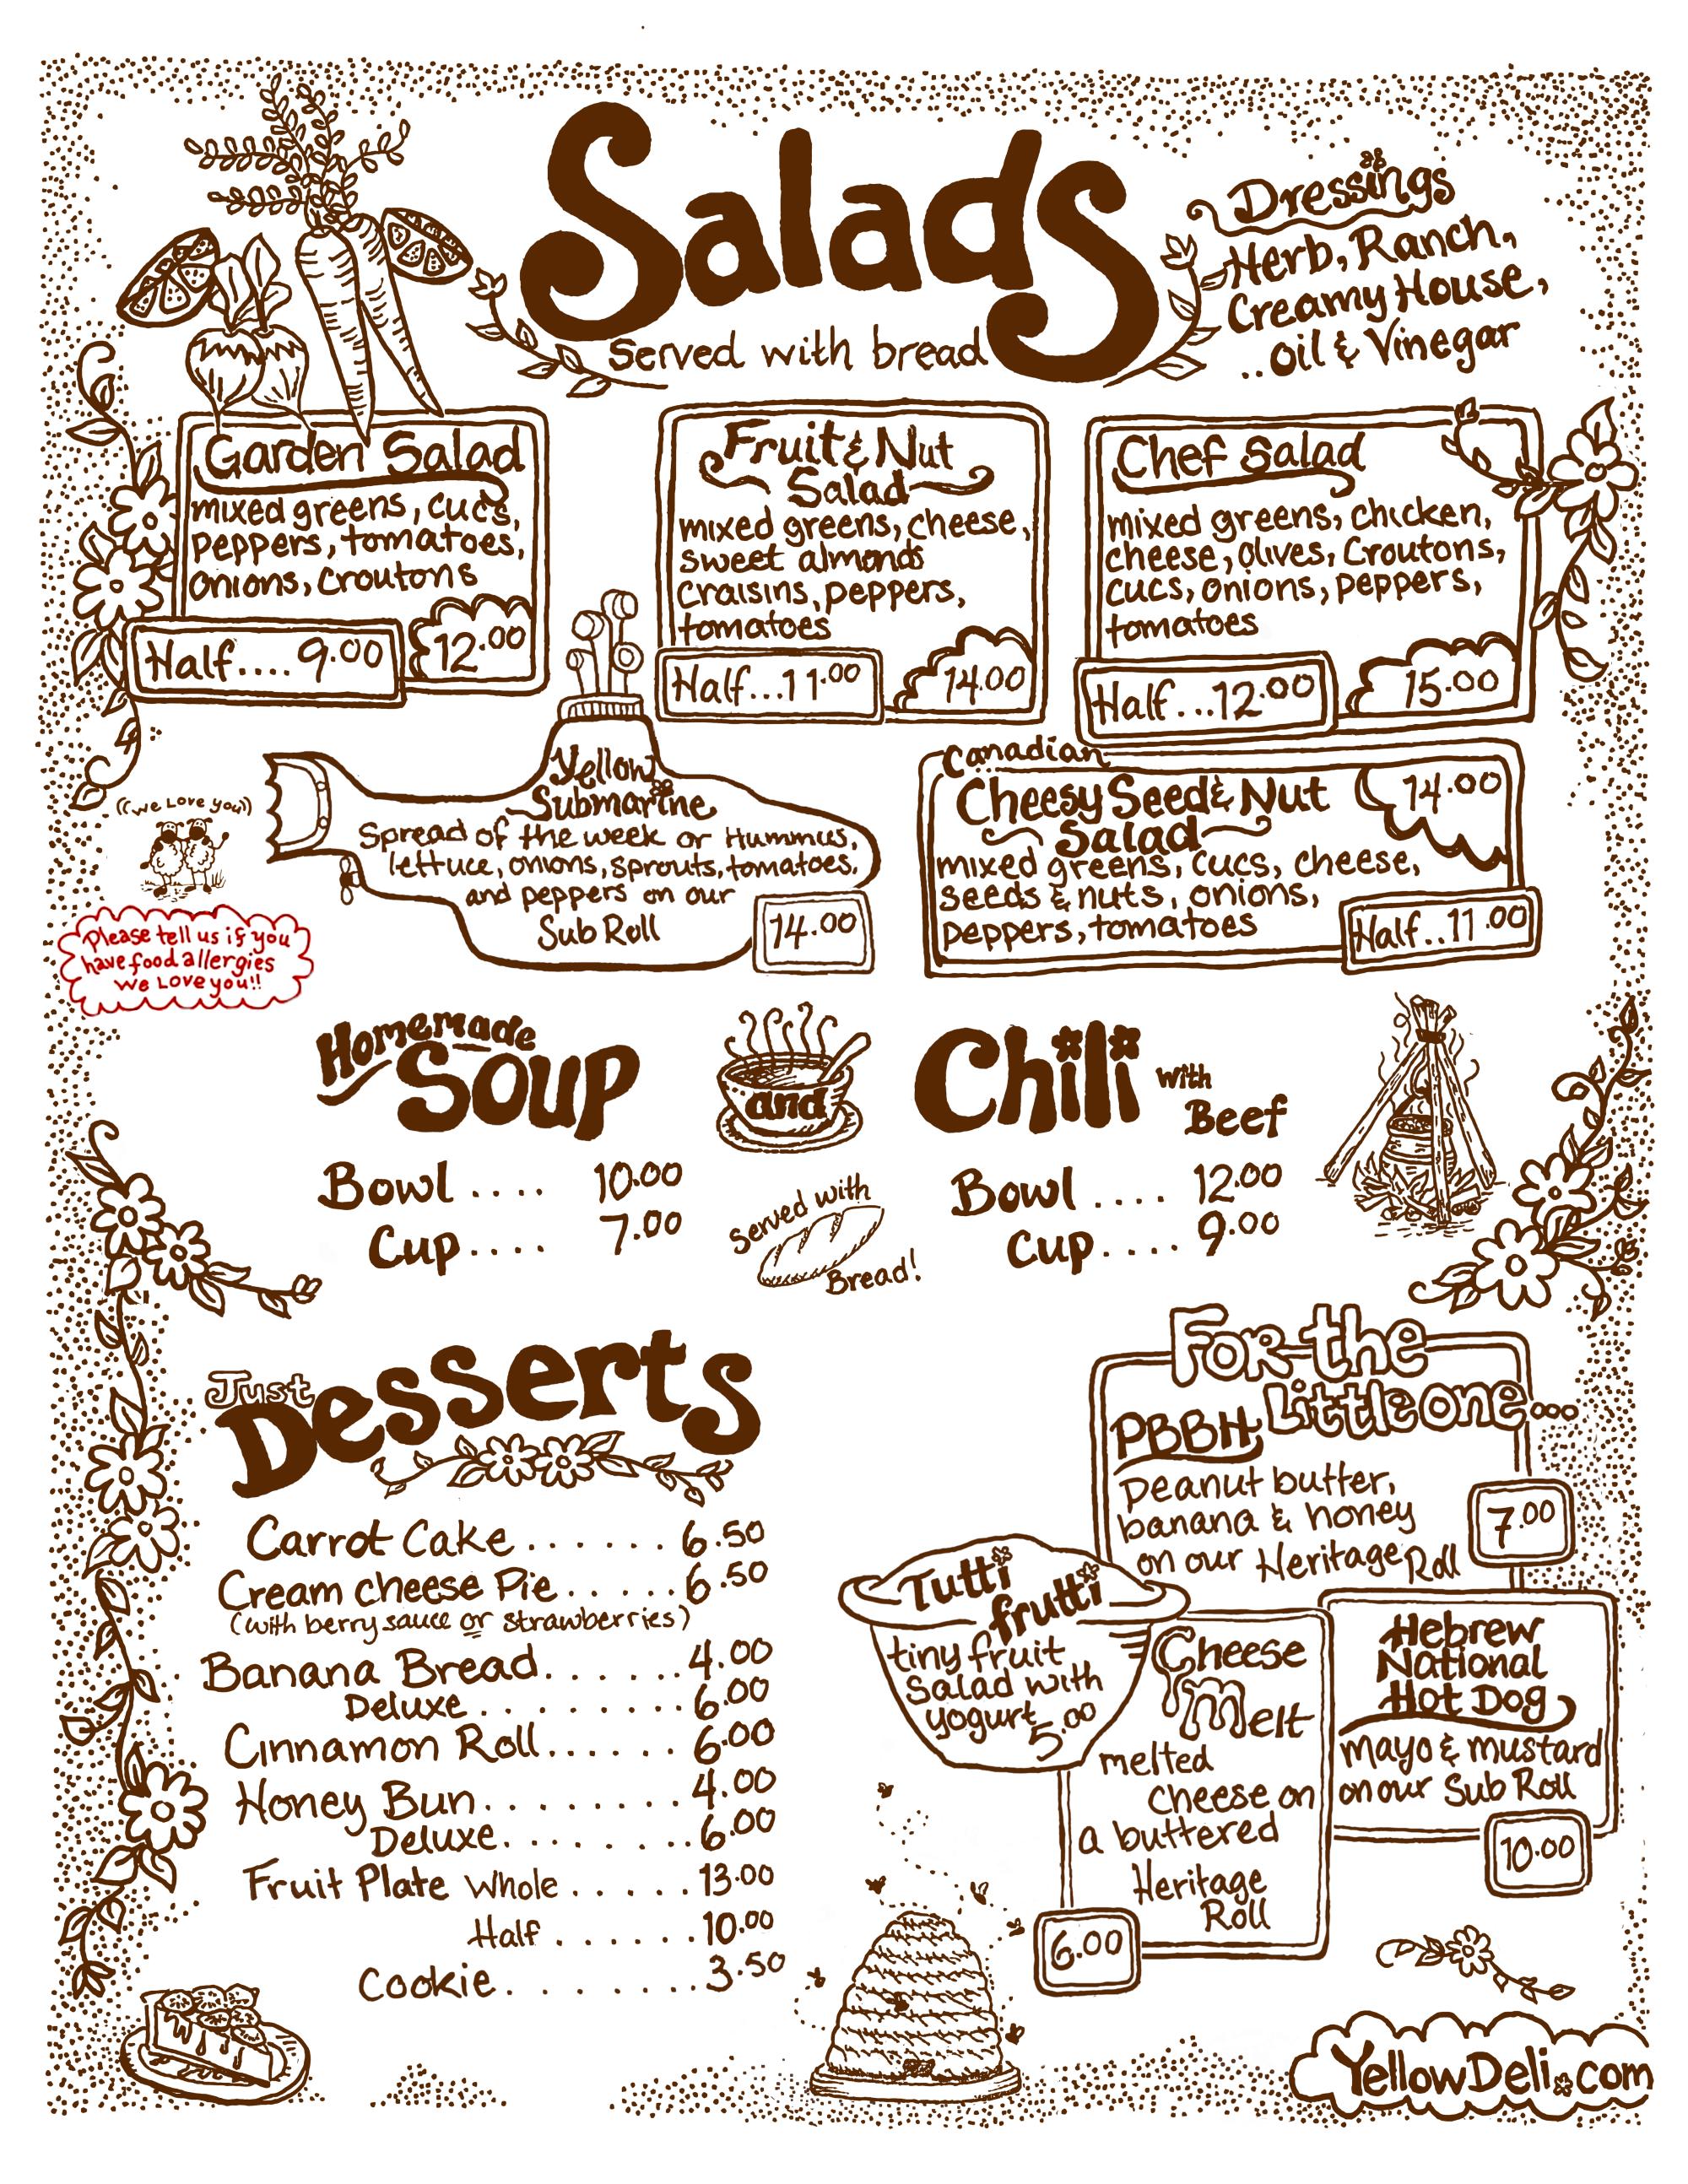 Salads
Served with bread
Dressings
Herb, Ranch,
Creamy House,
..oil & Vinegar
Garden Salad
mixed greens, cucs,
peppers, tomatoes,
onions, croutons
Half.... 9.00
12.00
Fruit & Nut
Salad
mixed greens, cheese,
sweet almonds
craisins, peppers,
tomatoes
Half...11.00
14.00
Chef Salad
mixed greens, chicken,
cheese, olives, croutons,
cucs, onions, peppers,
tomatoes
Half...12.00
15.00
((we Love you))
Please tell us if you
have food allergies
We Love you!!
Yellow
Submarine
Spread of the week or Hummus,
lettuce, onions, sprouts, tomatoes,
and peppers on our
Sub Roll
14.00
Canadian
Cheesy Seed & Nut
Salad
14.00
mixed greens, cucs, cheese,
seeds & nuts, onions,
peppers, tomatoes
Half..11.00
Homemade
Soup
and
Chili with
Beef
Bowl .... 10.00
Cup.... 7.00
Served with
Bread!
Bowl .... 12.00
Cup.... 9.00
Just
Desserts
Carrot Cake....... 6.50
Cream cheese Pie......6.50
(with berry sauce or strawberries)
Banana Bread.......4.00
Deluxe.........6.00
Cinnamon Roll...... 6.00
Honey Bun.........4.00
Deluxe........6.00
Fruit Plate Whole......13.00
Half......10.00
Cookie........3.50
For the
Little one...
PBBH
Peanut butter,
banana & honey
on our Heritage Roll
7.00
Tutti
frutti
tiny fruit
Salad with
yogurt 5.00
Cheese
Melt
melted
cheese on
a buttered
Heritage
Roll
6.00
Hebrew
National
Hot Dog
mayo & mustard
on our Sub Roll
10.00
YellowDeli.com